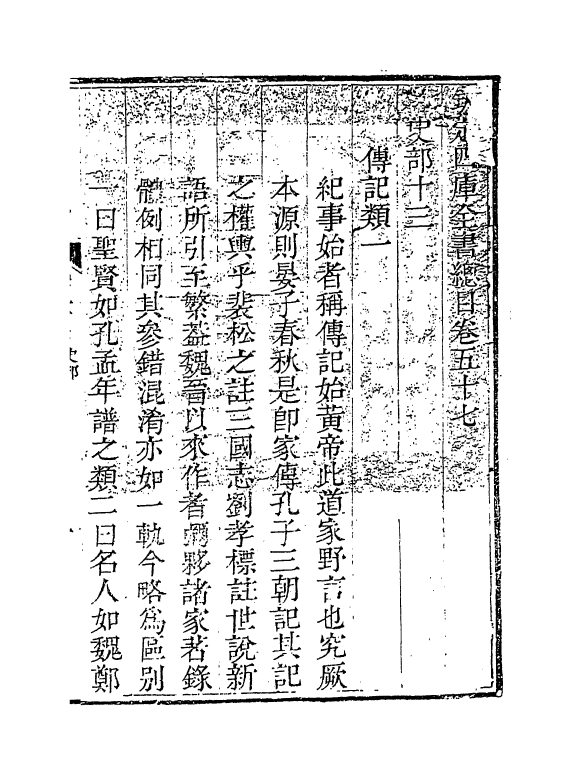 欽定四庫全書總目卷五十七
史部十三
傳記類一
紀事始者稱傳記始黃帝此道家野言也究厥
本源則晏子春秋是卽家傳孔子三朝記其記
之權輿乎裴松之註三國志劉孝標註世說新
語所引至繁葢魏晉以來作者彌夥諸家著錄
體例相同其參錯混淆亦如一軌今略爲區別
一曰聖賢如孔孟年譜之類二曰名人如魏鄭
史部